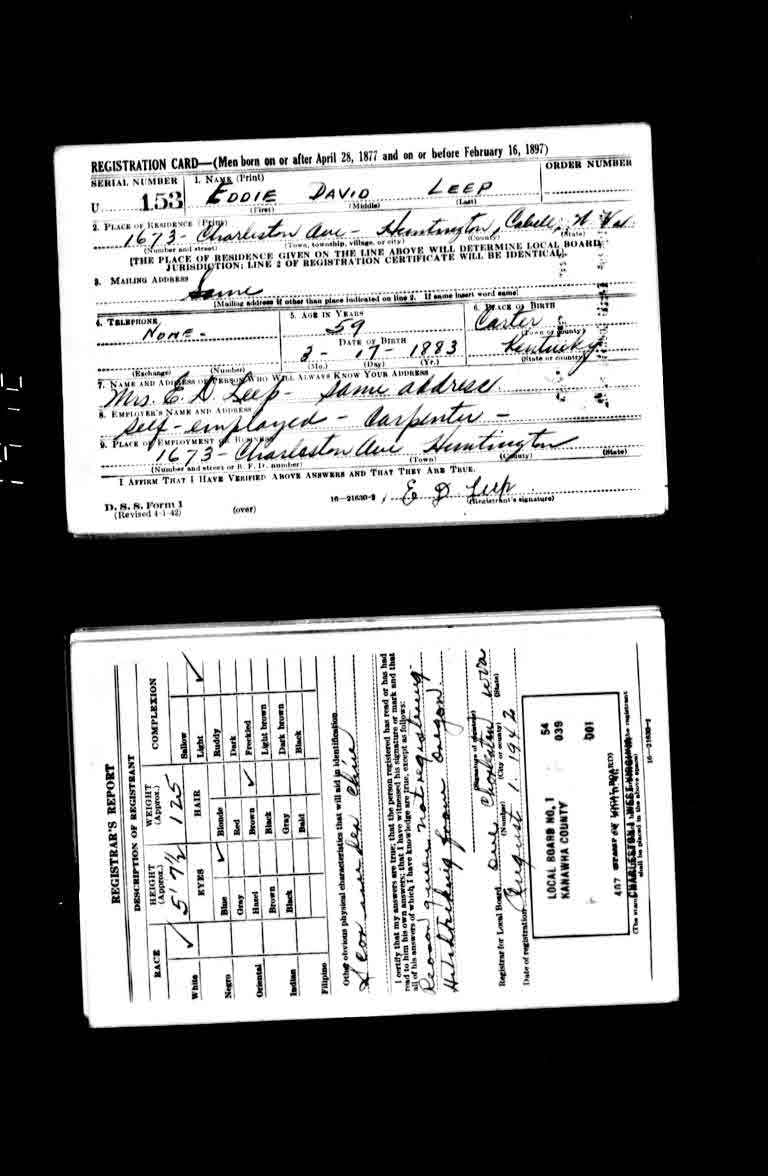 REGISTRATION CARD—(Men born on or after April 28, 1877 and on or before February 16, 1897)
SERIAL NUMBER 1. NAME (Print) ORDER NUMBER
U 153 EDDIE DAVID LEEP
(First) (Middle) (Last)
2. PLACE OF RESIDENCE (Print)
1673 - Charleston Ave - Huntington, Cabell, W Va.
(Number and street) (Town, township, village, or city) (County) (State)
[THE PLACE OF RESIDENCE GIVEN ON THE LINE ABOVE WILL DETERMINE LOCAL BOARD
JURISDICTION; LINE 2 OF REGISTRATION CERTIFICATE WILL BE IDENTICAL]
3. MAILING ADDRESS
Same
[Mailing address if other than place indicated on line 2. If same insert word same]
4. TELEPHONE 5. AGE IN YEARS 6. PLACE OF BIRTH
NONE - 59 Carter
DATE OF BIRTH (Town or county)
3 - 17 - 1883 Kentucky
(Exchange) (Number) (Mo.) (Day) (Yr.) (State or country)
7. NAME AND ADDRESS OF PERSON WHO WILL ALWAYS KNOW YOUR ADDRESS
Mrs. E. D. Leep - same address
8. EMPLOYER'S NAME AND ADDRESS
Self-employed - Carpenter -
9. PLACE OF EMPLOYMENT OR BUSINESS
1673 - Charleston Ave Huntington
(Number and street or R. F. D. number) (Town) (County) (State)
I AFFIRM THAT I HAVE VERIFIED ABOVE ANSWERS AND THAT THEY ARE TRUE.
E D Leep
D. S. S. Form 1 16—21630-2 (Registrant's signature)
(Revised 4-1-42) (over)
REGISTRAR'S REPORT
DESCRIPTION OF REGISTRANT
RACE HEIGHT (Approx.) WEIGHT (Approx.) COMPLEXION
5' 7½ 125
EYES HAIR
White ✓ Blue ✓ Blonde Sallow
Light ✓
Negro Gray Red Ruddy
Dark
Oriental Hazel Brown ✓ Freckled
Brown Black Light brown
Indian Black Gray Dark brown
Bald Black
Filipino
Other obvious physical characteristics that will aid in identification
Scar under chin
I certify that my answers are true; that the person registered has read or has had
read to him his own answers; that I have witnessed his signature or mark and that
all of his answers of which I have knowledge are true, except as follows:
Reason given not registering
Hitchhiking from Oregon
(Signature of registrar)
Registrar for Local Board one Charleston W Va
(Number) (City or county) (State)
Date of registration August 1, 1942
LOCAL BOARD NO. 1 54
KANAWHA COUNTY 039
001
407
CHARLESTON 1 WEST VIRGINIA
(STAMP OF LOCAL BOARD)
shall be placed in the above space)
16—21630-2